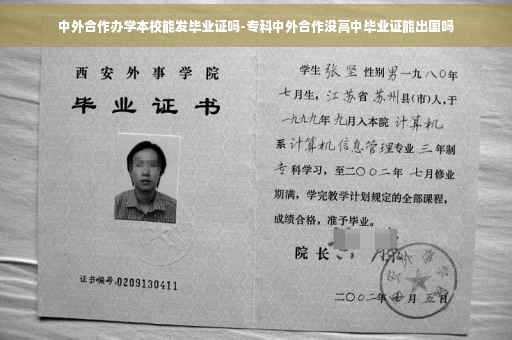 中外合作办学本校能发毕业证吗-专科中外合作没高中毕业证能出国吗
西安外事学院
毕业证书
证书编号:0209130411
学生 张坚 性别 男 一九八〇年
七月生, 江苏省 苏州县(市)人,于
一九九九年 九月入本院 计算机
系 计算机信息管理专业 三 年制
专 科学习, 至二〇〇二年 七月修业
期满, 学完教学计划规定的全部课程,
成绩合格, 准予毕业。
院长
二〇〇二年 月 五日